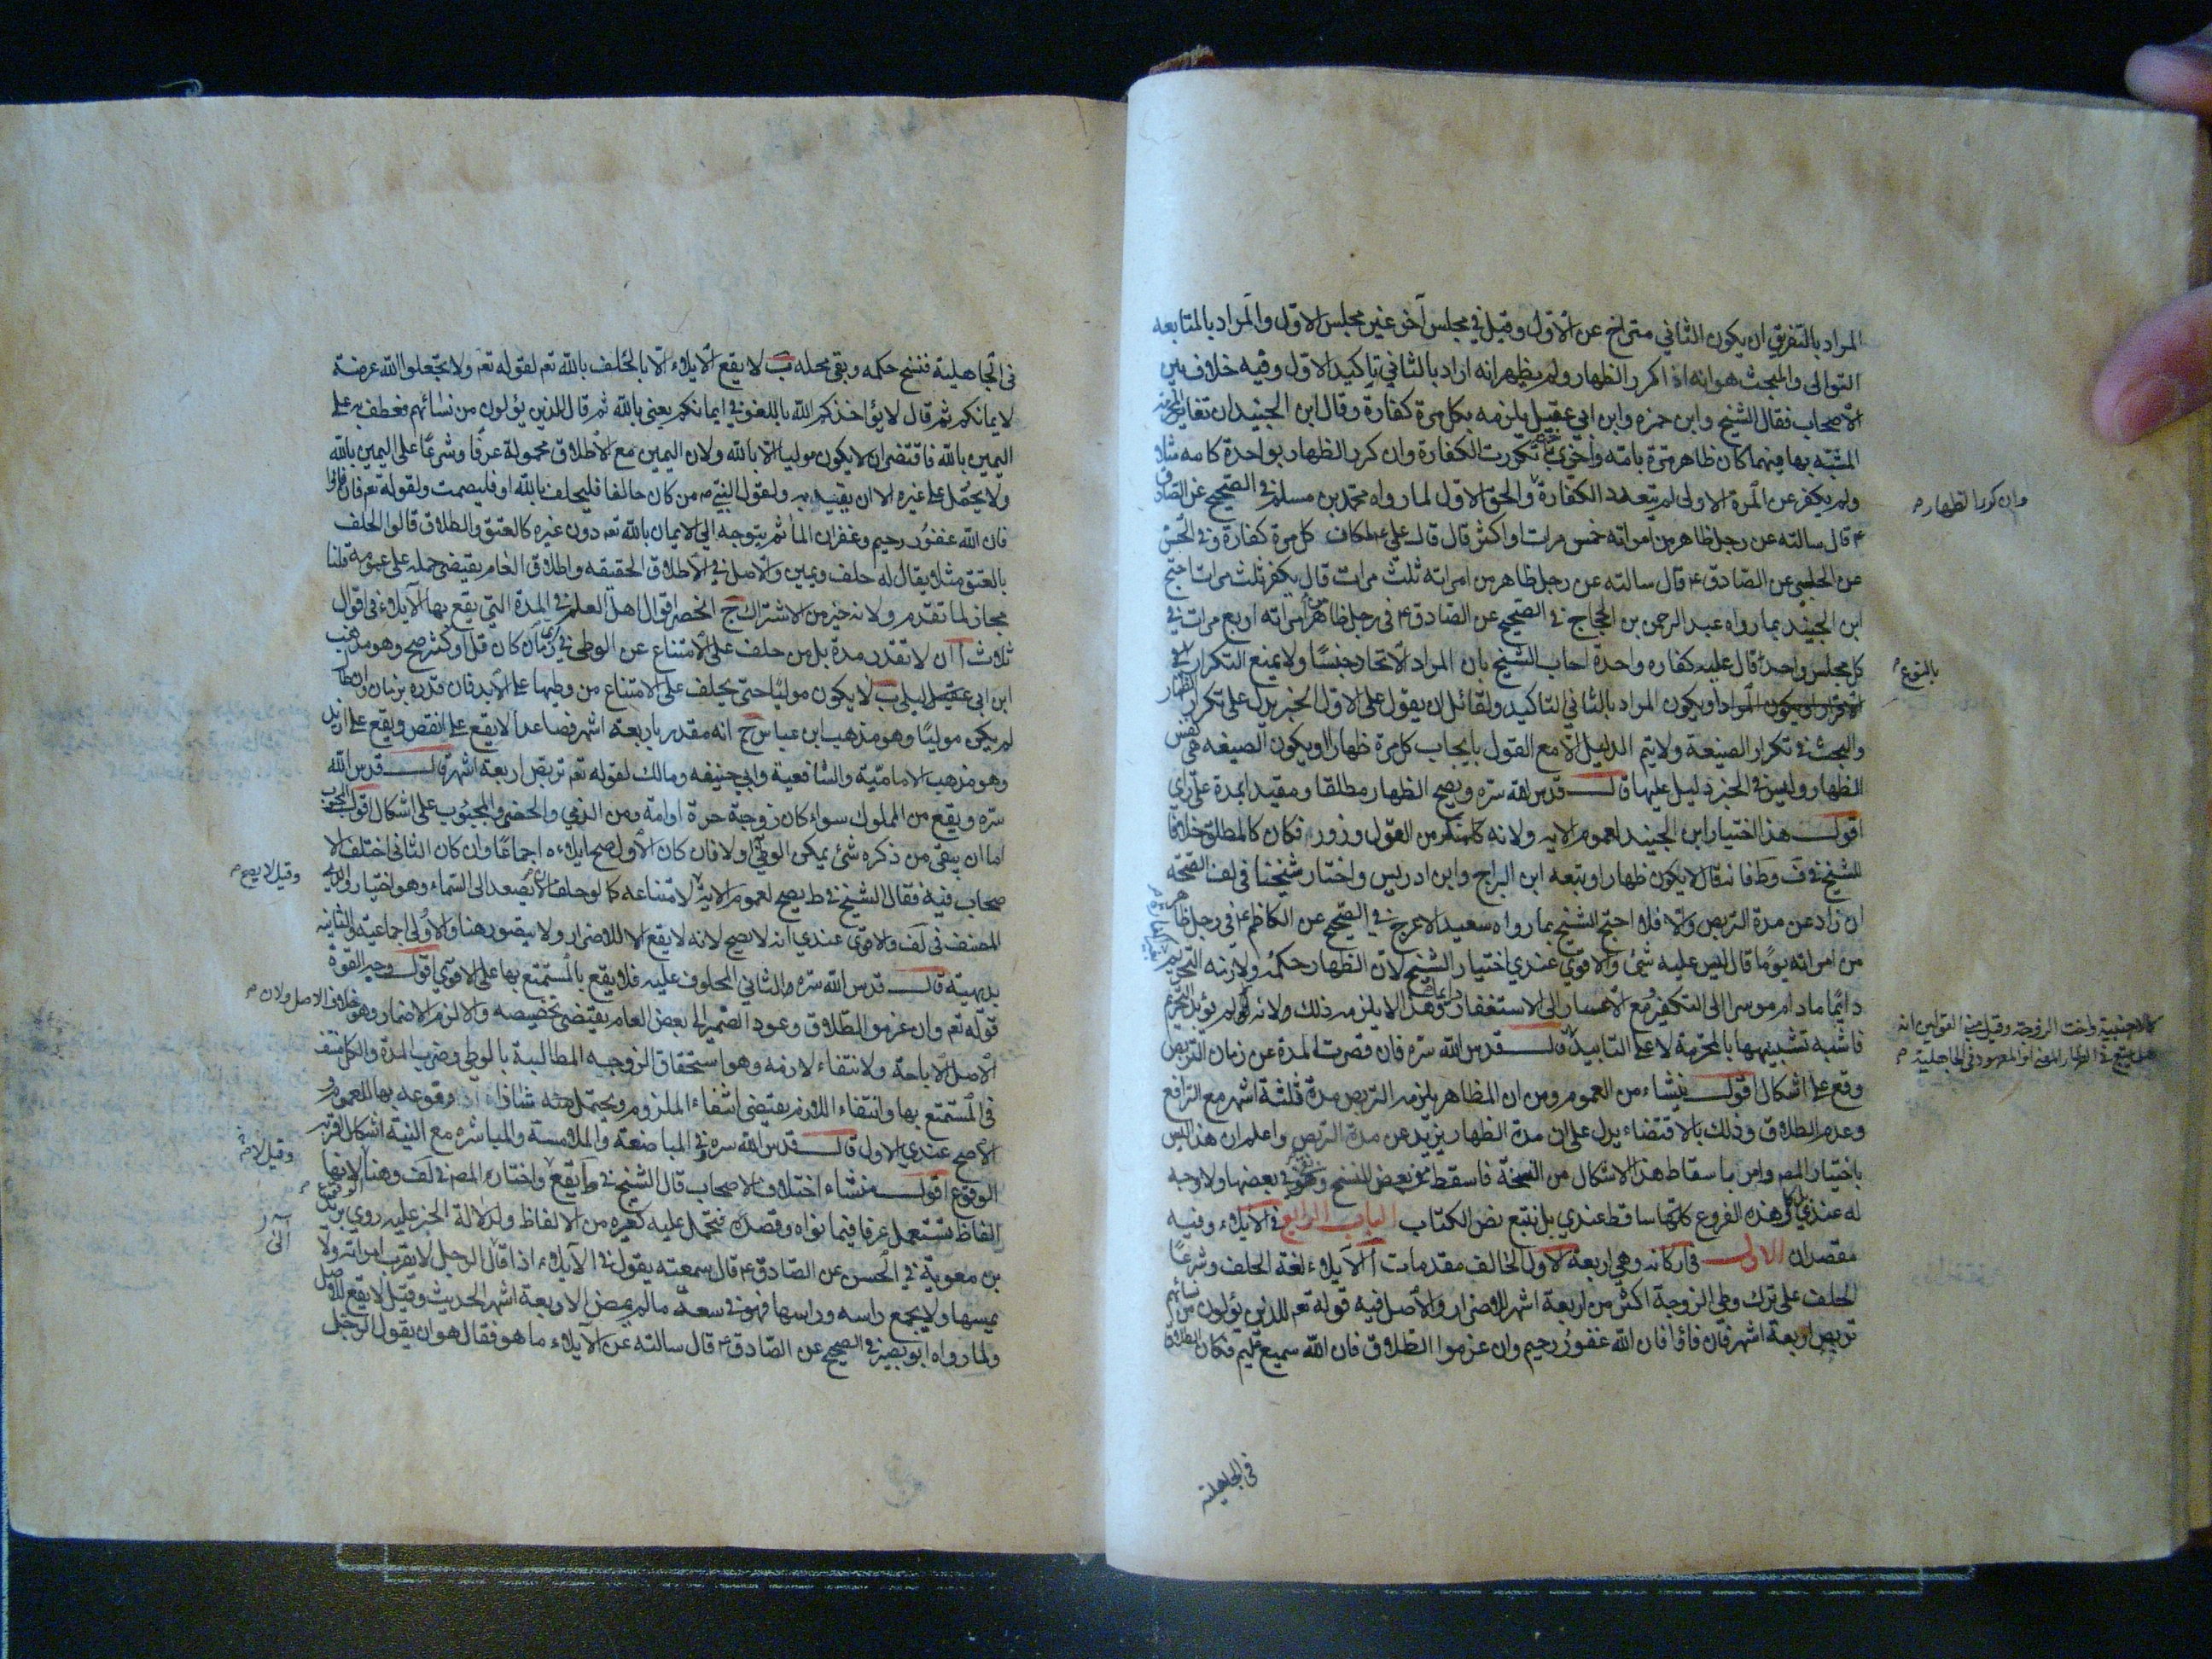 المراد بالتفريق ان يكون الثاني متراخ عن الاول وقيل في مجلس آخر غير مجلس الاول والمراد بالمتابعه
التوالى والمبحث هو انه اذا كرر الظهار ولم يظهر انه اراد بالثاني تاكيد الاول وفيه خلاف بين
الاصحاب فقال الشيخ وابن حمزه وابن ابي عقيل يلزمه بكل مرة كفارة وقال ابن الجنيد ان تغاير
المشبه بها فيهما كان ظاهر مرة بامه واخرى تكررت الكفارة وان كرر الظهار بواحدة كامه مثلا
ولم يكفر عن المرة الاولى لم تتعدد الكفارة والحق الاول لما رواه محمد بن مسلم في الصحيح عن الصادق
ع قال سالته عن رجل ظاهر من امراته خمس مرات او اكثر قال قال على ع مكان كل مرة كفارة وفى الحسن
عن الحلبي عن الصادق ع قال سالته عن رجل ظاهر من امراته ثلث مرات قال يكفر ثلث مرات احتج
ابن الجنيد بما رواه عبد الرحمن بن الحجاج في الصحيح عن الصادق ع فى رجل ظاهر من امراته اربع مرات في
كل مجلس واحدا قال عليه كفاره واحدة اجاب الشيخ بان المراد الاتحاد جنسا ولا يمنع التكرار
او يكون المراد بالثاني التاكيد ولقائل ان يقول على الاول الخبر يدل على تكرر الظهار
والبحث في تكرار الصيغة ولا يتم الدليل الا مع القول بايجاب كل مرة ظهارا او يكون الصيغه هى نفس
الظهار وليس في الخبر دليل عليها قال قدس الله سره ويصح الظهار مطلقا ومقيدا بمدة على راي
اقول هذا اختيار ابن الجنيد لعموم الايه ولانه كالمنكر من القول وزور فكان كالمطلق خلافا
للشيخ في ف وط فانه قال لا يكون ظهارا وتبعه ابن البراج وابن ادريس واختار شيخنا في لف الصحة
ان زاد عن مدة التربص والا فلا احتج الشيخ بما رواه سعيد الاعرج في الصحيح عن الكاظم ع فى رجل ظاهر
من امراته يوما قال ليس عليه شئ والاقوى عندي اختيار الشيخ لان الظهار حكمه ولازمه التحريم
دائما ما دام موسرا الى التكفير ومع الاعسار الى الاستغفار وهذا لا يلزمه ذلك ولانه لو لم يؤبد التحريم
فاشبه تشبيهها بالمحرمة لا على التابيد قال قدس الله سره فان قصرت المدة عن زمان التربص
وقع على اشكال اقول ينشاء من العموم ومن ان المظاهر يلزمه التربص مدة ثلثة اشهر مع الترافع
وعدم الطلاق وذلك بالاقتضاء يدل على ان مدة الظهار يزيد عن مدة التربص واعلم ان هذا ليس
باختيار المصر وامر باسقاط هذا الاشكال من النسخة فاسقط من بعض النسخ وبقى في بعضها ولا وجه
له عندي بل هذه الفروع كلها ساقط عندي بل نتبع نص الكتاب الباب الرابع فى الايلاء وفيه
مقصدان الاول فى اركانه وهي اربعة الاول الحالف مقدمات ا الايلاء لغة الحلف وشرعا
الحلف على ترك وطى الزوجة اكثر من اربعة اشهر للاضرار والاصل فيه قوله تعم للذين يؤلون من نسائهم
تربص اربعة اشهر فان فاؤا فان الله غفور رحيم وان عزموا الطلاق فان الله سميع عليم فكان الطلاق
وان كرر الظهار م
بالنوع
كالاجنبية واخت الزوجة وقيل
فى الجاهلية
فى الجاهلية فنسخ حكمه وبقى محله ب لا يقع الايلاء الا بالحلف بالله تعم لقوله تعم ولا تجعلوا الله عرضة
لايمانكم ثم قال لا يؤاخذكم الله باللغو في ايمانكم يعنى بالله ثم قال للذين يؤلون من نسائهم فعطف به على
اليمين بالله فاقتضى ان لا يكون موليا الا بالله ولان اليمين مع الاطلاق محمولة عرفا وشرعا على اليمين بالله
ولا يحمل على غيره الا ان يقيد به ولقول النبي ص من كان حالفا فليحلف بالله او فليصمت ولقوله تعم فان فاؤا
فان الله غفور رحيم وغفران الماثم يتوجه الى الايمان بالله تعم دون غيره كالعتق والطلاق قالوا الحلف
بالعتق مثلا يقال له حلف ويمين والاصل في الاطلاق الحقيقه واطلاق العام يقتضى حمله على عمومه قلنا
مجاز لما تقدم ولانه خير من الاشتراك ج انحصر اقوال اهل العلم في المدة التي يقع بها الايلاء فى اقوال
ثلاث ا ان لا تقدر مدة بل من حلف على الامتناع عن الوطى في اى زمان كان قل او كثر صح وهو مذهب
ابن ابي ليلى ب لا يكون موليا حتى يحلف على الامتناع من وطيها على الابد فان قدره بزمان وان طال
لم يكن موليا وهو مذهب ابن عباس ج انه مقدر باربعة اشهر فصاعدا لا يقع على انقص ويقع على ازيد
وهو مذهب الامامية والشافعية وابي حنيفه ومالك لقوله تعم تربص اربعة اشهر قال قدس الله
سره ويقع من المملوك سواء كان زوجية حرة او امة ومن الذمي والخصى والمجبوب على اشكال اقول المجبوب
اما ان يبقى من ذكره شئ يمكن الوطى او لا فان كان الاول صح ايلاءه اجماعا وان كان الثانى اختلف الا
صحاب فيه فقال الشيخ في ط يصح لعموم الاية لامتناعه كما لو حلف ان لا يصعد الى السماء وهو اختيار والدى
المصنف في لف والاقوى عندي انه لا يصح لانه لا يقع الا للاضرار ولا يتصور هنا والاولى اجماعية والثانيه
بديهية قال قدس الله سره والثاني المحلوف عليه فلا يقع بالمستمتع بها على الاقوى اقول وجه القوة
قوله تعم وان عزموا الطلاق وعود الضمير الى بعض العام يقتضى تخصيصه والا لزم الاضمار وهو خلاف الاصل ولان
الاصل الاباحة ولانتفاء لازمه وهو استحقاق الزوجيه المطالبة بالوطى وضرب المدة والكل منتف
فى المستمتع بها وانتفاء اللازم يقتضى انتفاء الملزوم ويحتمل وقوعه بها للعموم و
الاصح عندي الاول قال قدس الله سره وفي المباضعة والملامسة والمباشره مع النية اشكال اقربه
الوقوع اقول منشاء اختلاف الاصحاب قال الشيخ في ط يقع واختاره المصر فى لف وهنا لانها
الفاظ تستعمل عرفا فيما نواه وقصده فتحمل عليه كغيره من الالفاظ ولدلالة الخبر عليه روى بريد
بن معوية في الحسن عن الصادق ع قال سمعته يقول في الايلاء اذا قال الرجل لا يقرب امراته ولا
يمسها ولا يجمع راسه وراسها فهو فى سعة ما لم يمض الاربعة اشهر الحديث وقيل لا يقع للاصل
ولما رواه ابو بصير في الصحيح عن الصادق ع قال سالته عن الايلاء ما هو فقال هو ان يقول الرجل
وقيل لا يصح م
وقيل لا